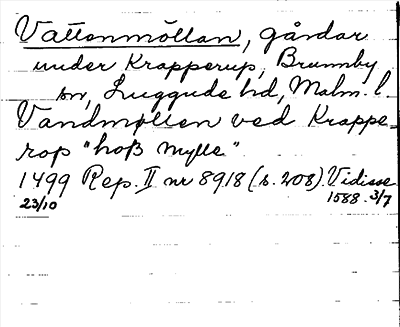 Vattenmöllan, gårdar
under Krapperup, Brunnby
sn, Luggude hd, Malm. l.
Vandmøllen ved Krappe-
rop "hoß mylle".
1499 Rep. II nr 8918 (s. 208). Vidisse
23/10 1588 3/7